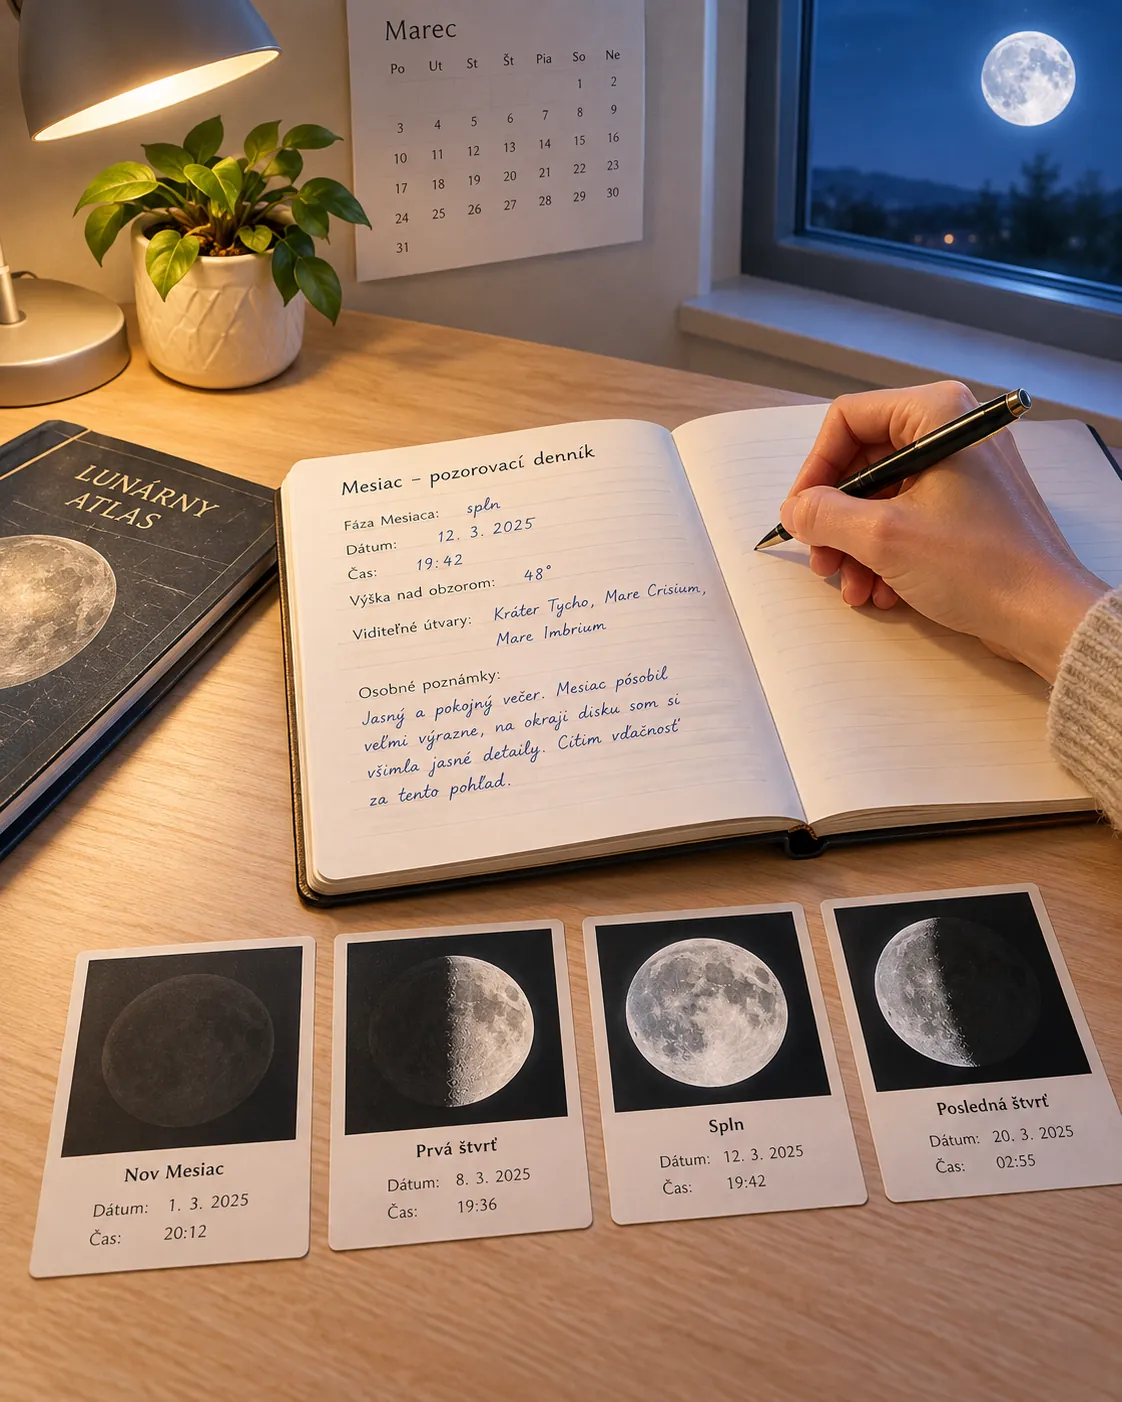 Marec
Po Ut St Št Pia So Ne
1 2
3 4 5 6 7 8 9
10 11 12 13 14 15 16
17 18 19 20 21 22 23
24 25 26 27 28 29 30
31
LUNÁRNY
ATLAS
Mesiac – pozorovací denník
Fáza Mesiaca: spln
Dátum: 12. 3. 2025
Čas: 19:42
Výška nad obzorom: 48°
Viditeľné útvary: Kráter Tycho, Mare Crisium,
Mare Imbrium
Osobné poznámky:
Jasný a pokojný večer. Mesiac pósobil
veľmi výrazne, na okraji disku som si
všimla jasné detaily. Cítim vďačnosť
za tento pohľad.
Nov Mesiac
Dátum: 1. 3. 2025
Čas: 20:12
Prvá štvrť
Dátum: 8. 3. 2025
Čas: 19:36
Spln
Dátum: 12. 3. 2025
Čas: 19:42
Posledná štvrť
Dátum: 20. 3. 2025
Čas: 02:55